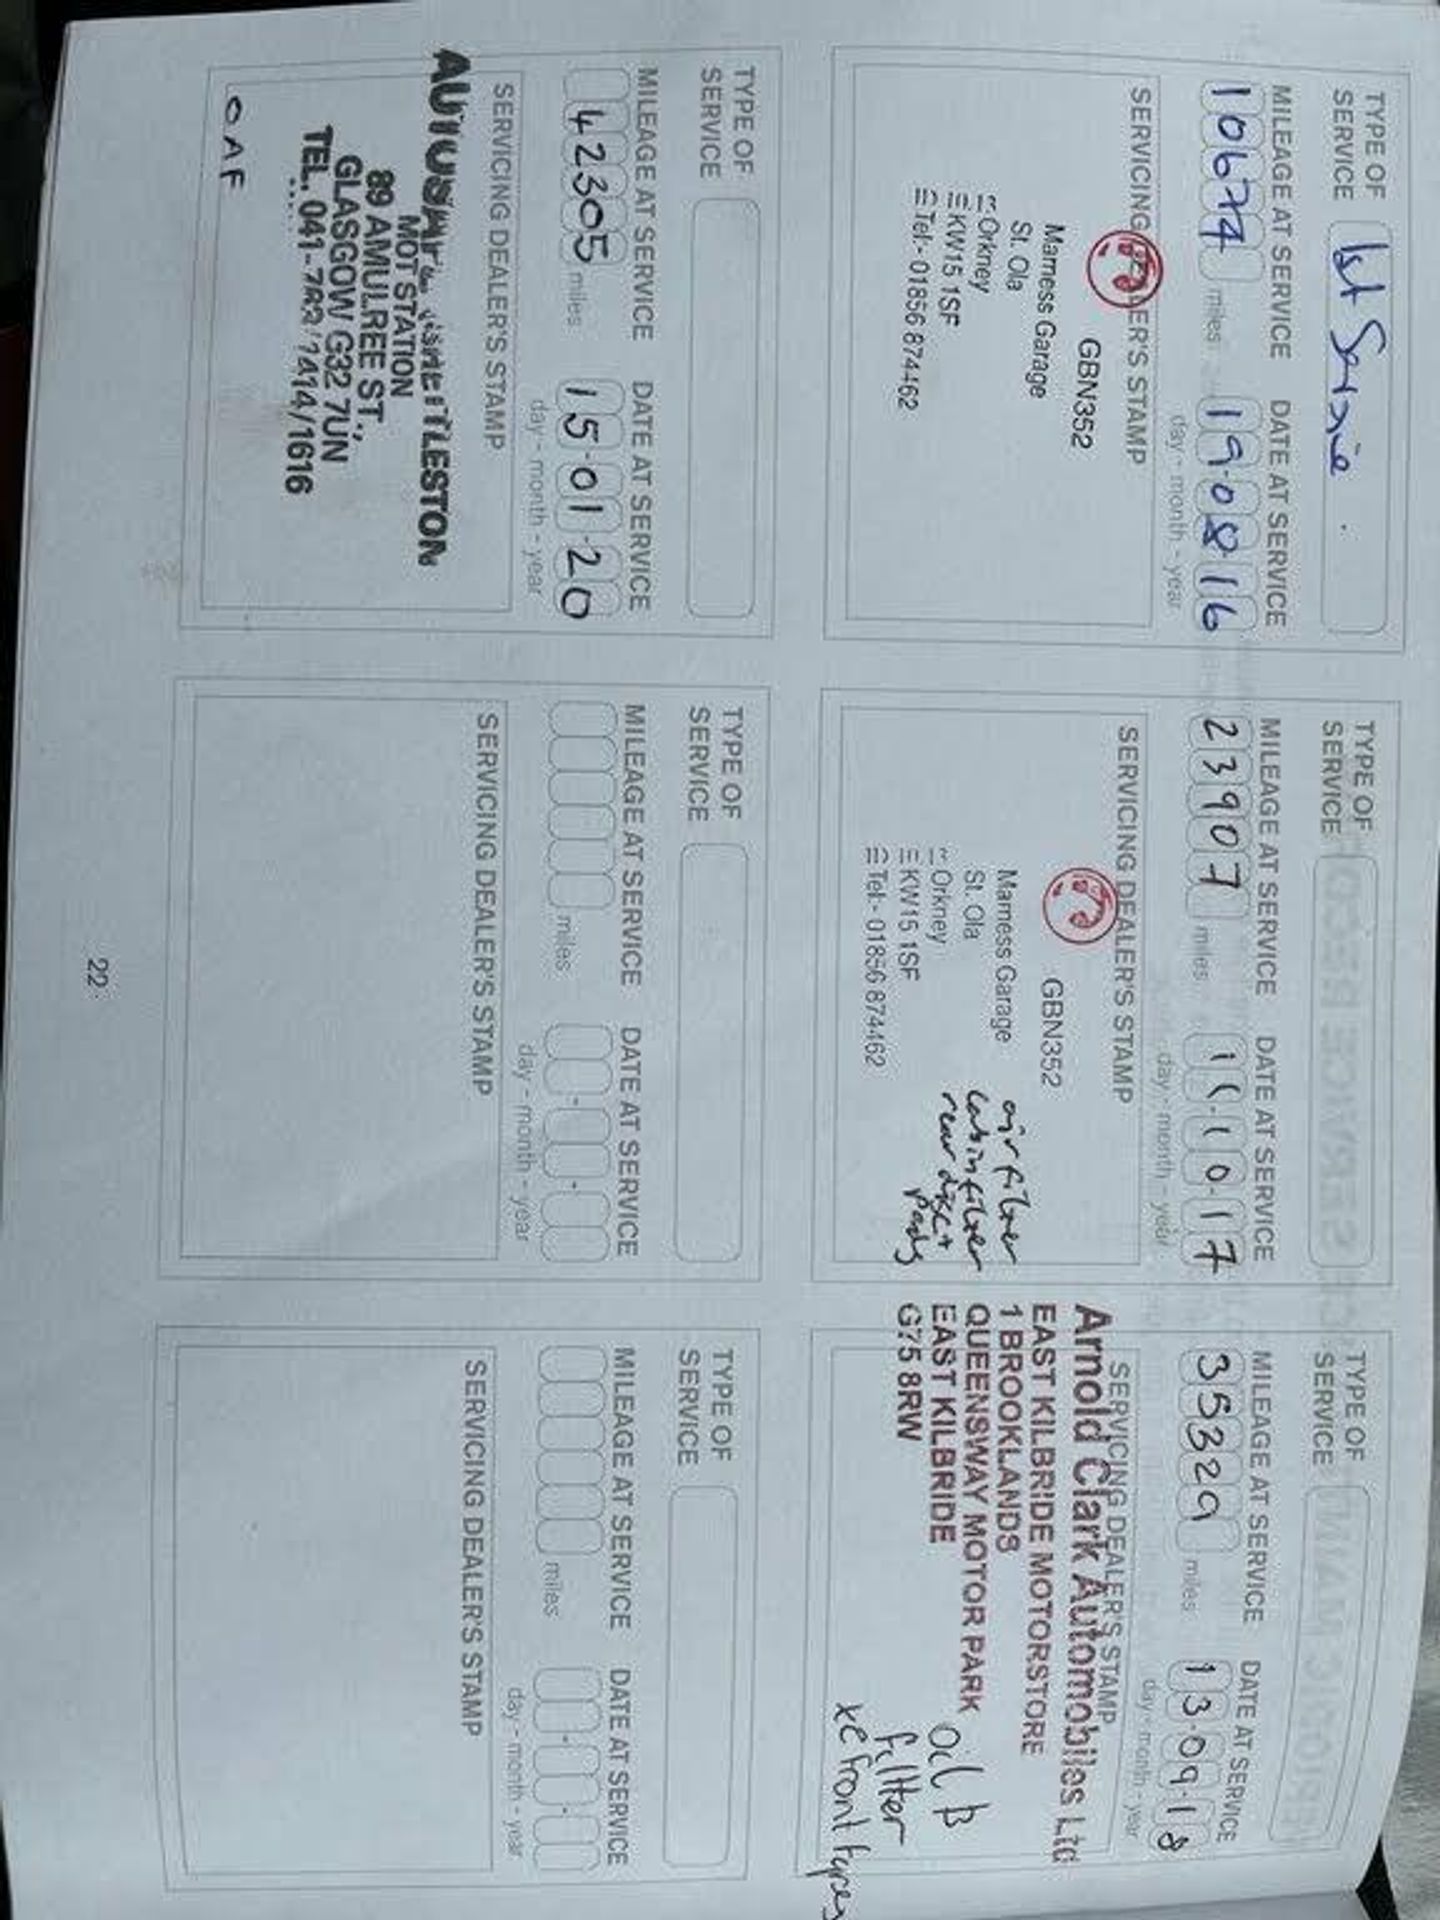 TYPE OF
SERVICE
1st Service
MILEAGE AT SERVICE DATE AT SERVICE
10674 miles 19·08·16
day - month - year
SERVICING DEALER'S STAMP
GBN352
Marness Garage
St. Ola
Orkney
KW15 1SF
Tel:- 01856 874462
TYPE OF
SERVICE
MILEAGE AT SERVICE DATE AT SERVICE
23907 miles 11·10·17
day - month - year
SERVICING DEALER'S STAMP
GBN352
Marness Garage
St. Ola
Orkney
KW15 1SF
Tel:- 01856 874462
air filter
cabin filter
rear disc +
Pads
TYPE OF
SERVICE
MILEAGE AT SERVICE DATE AT SERVICE
35329 miles 13·09·18
day - month - year
SERVICING DEALER'S STAMP
Arnold Clark Automobiles Ltd
EAST KILBRIDE MOTORSTORE
1 BROOKLANDS
QUEENSWAY MOTOR PARK
EAST KILBRIDE
G75 8RW
Oil
fillter
front tyres
TYPE OF
SERVICE
MILEAGE AT SERVICE DATE AT SERVICE
42305 miles 15·01·20
day - month - year
SERVICING DEALER'S STAMP
MOT STATION
89 AMULREE ST.,
GLASGOW G32 7UN
TEL. 041-
OAF
TYPE OF
SERVICE
MILEAGE AT SERVICE DATE AT SERVICE
miles
day - month - year
SERVICING DEALER'S STAMP
TYPE OF
SERVICE
MILEAGE AT SERVICE DATE AT SERVICE
miles
day - month - year
SERVICING DEALER'S STAMP
22